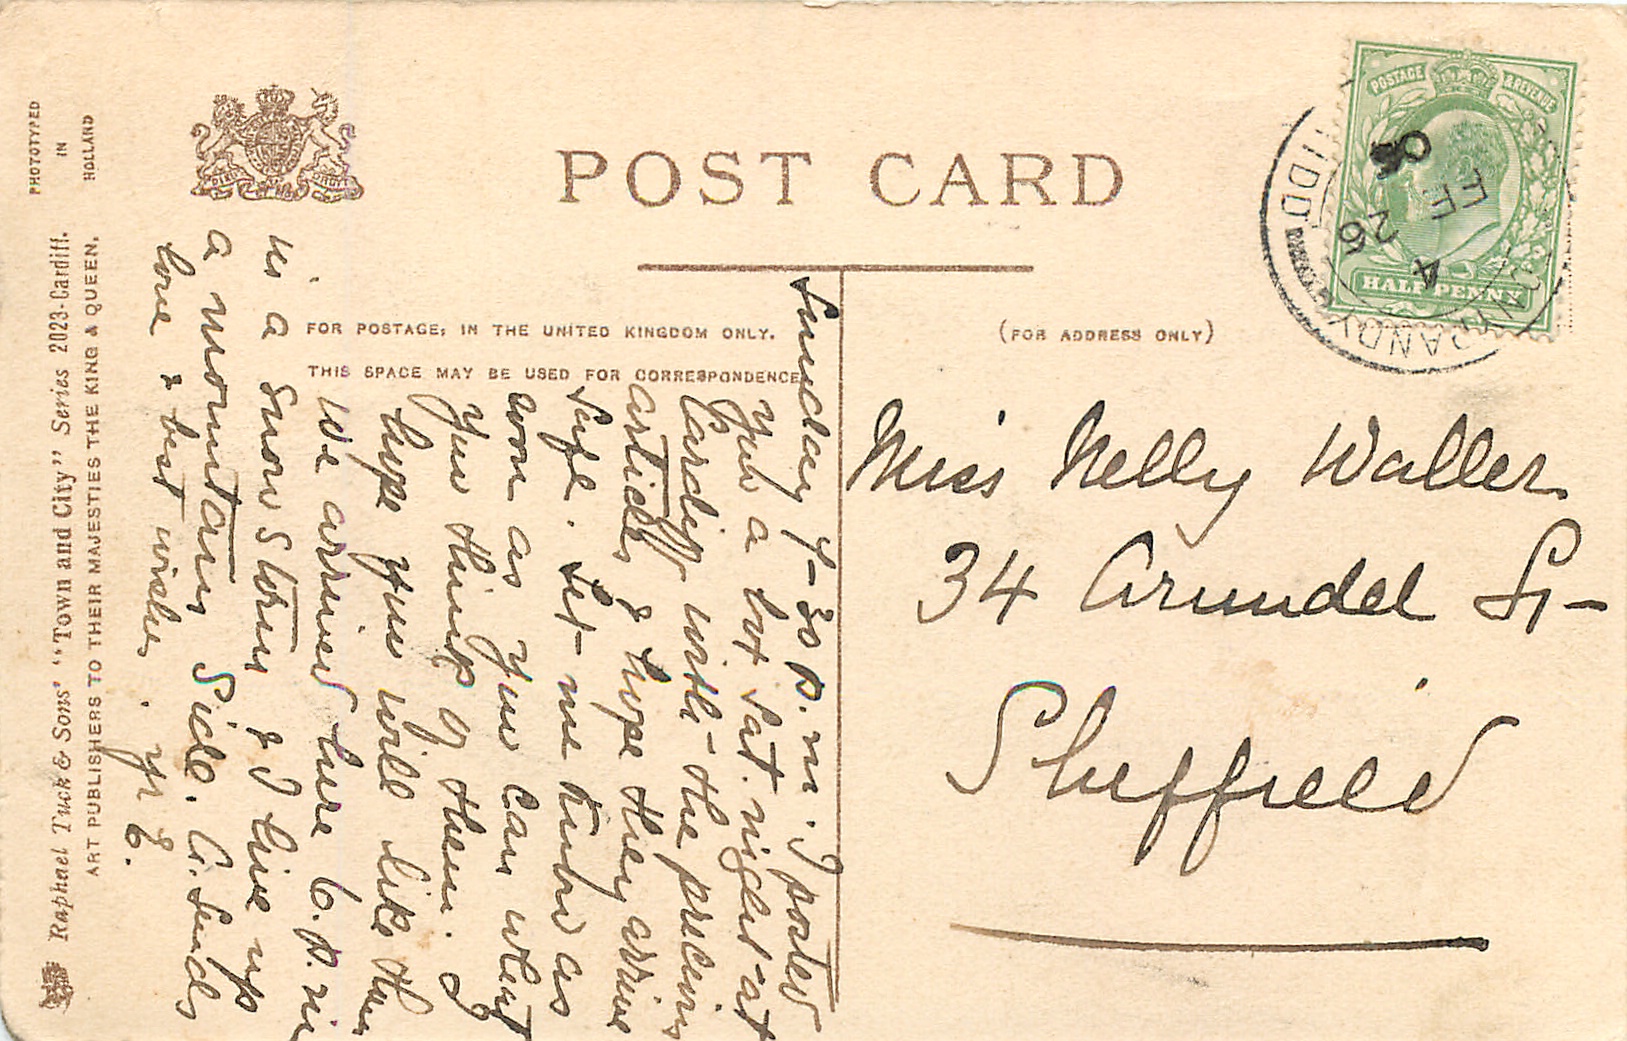 POST CARD
FOR POSTAGE, IN THE UNITED KINGDOM ONLY.
THIS SPACE MAY BE USED FOR CORRESPONDENCE
(FOR ADDRESS ONLY)
PHOTOTYPED
IN
HOLLAND
Raphael Tuck & Sons' "Town and City" Series 2023-Cardiff.
ART PUBLISHERS TO THEIR MAJESTIES THE KING & QUEEN.
POSTAGE & REVENUE
HALFPENNY
4
26
FE
Miss Nelly Waller
34 Arundel St-
Sheffield
Sunday 7-30 p.m. I posted
you a box Sat. night at
Cardiff with the precious
articles & hope they arrive
safe. Let me know as
soon as you can what
you think of them. I
hope you will like them
We arrived here 6.p.m
in a snow storm & I live up
a mountain side. A. sends
love & best wishes. yr E.